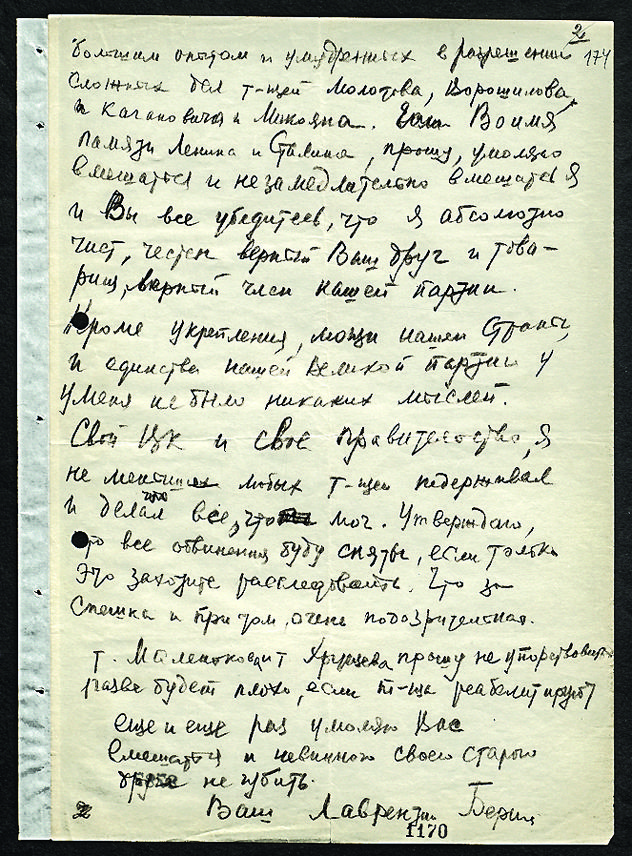 2
174
большим опытом и умудренных в разрешении
сложных дел т-щей Молотова, Ворошилова,
и Кагановича и Микояна. Во имя
памяти Ленина и Сталина, прошу, умоляю
вмешаться и незамедлительно вмешаться
и Вы все убедитесь, что я абсолютно
чист, честен верный Ваш друг и това-
рищ, верный член нашей партии.
Кроме укрепления, мощи нашей Страны,
и единства нашей Великой партии у
у меня не было никаких мыслей.
Свой ЦК и свое Правительство, я
не меньше любых т-щей подерживал
и делал все, что мог. Утверждаю,
что все обвинения будут сняты, если только
это захотите расследовать. Что за
спешка и притом, очень подозрительная.
т. Маленкова и т Хрущева прошу не упорствовать
разве будет плохо, если т-ща реабелитируют
еще и еще раз умоляю Вас
вмешаться и невинного своего старого
друга не губить.
Ваш Лаврентий Берия
2
1170